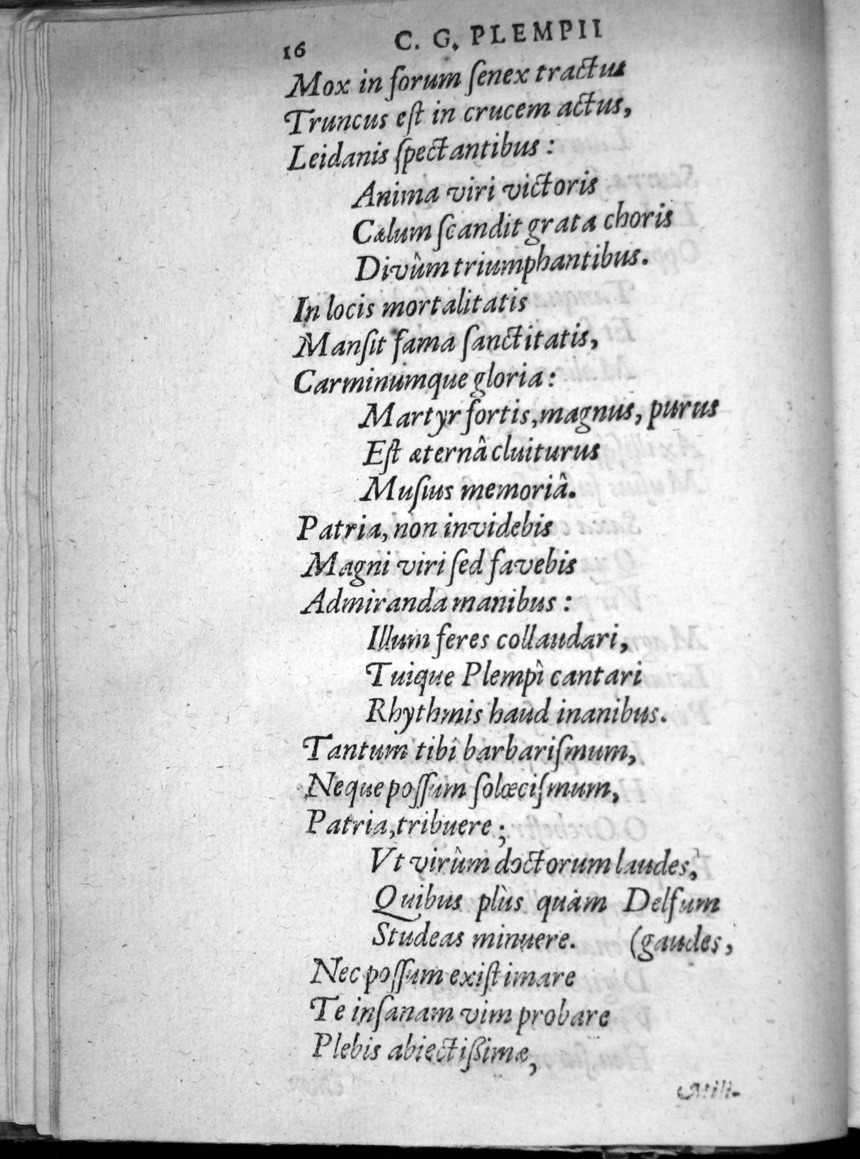 16 C. G. PLEMPII
Mox in forum ſenex tractus
Truncus eſt in crucem actus,
Leidanis ſpectantibus :
Anima viri victoris
Cælum ſcandit grata choris
Divûm triumphantibus.
In locis mortalitatis
Manſit fama ſanctitatis,
Carminumque gloria :
Martyr fortis, magnus, purus
Eſt æternâ cluiturus
Muſius memoriâ.
Patria, non invidebis
Magni viri ſed favebis
Admiranda manibus :
Illum feres collaudari,
Tuique Plempì cantari
Rhythmis haud inanibus.
Tantum tibi barbariſmum,
Neque poſſum ſolœciſmum,
Patria, tribuere ;
Vt virûm doctorum laudes,
Quibus plùs quàm Delfum
Studeas minuere. (gaudes,
Nec poſſum exiſtimare
Te inſanam vim probare
Plebis abiectißimæ,
Mili-